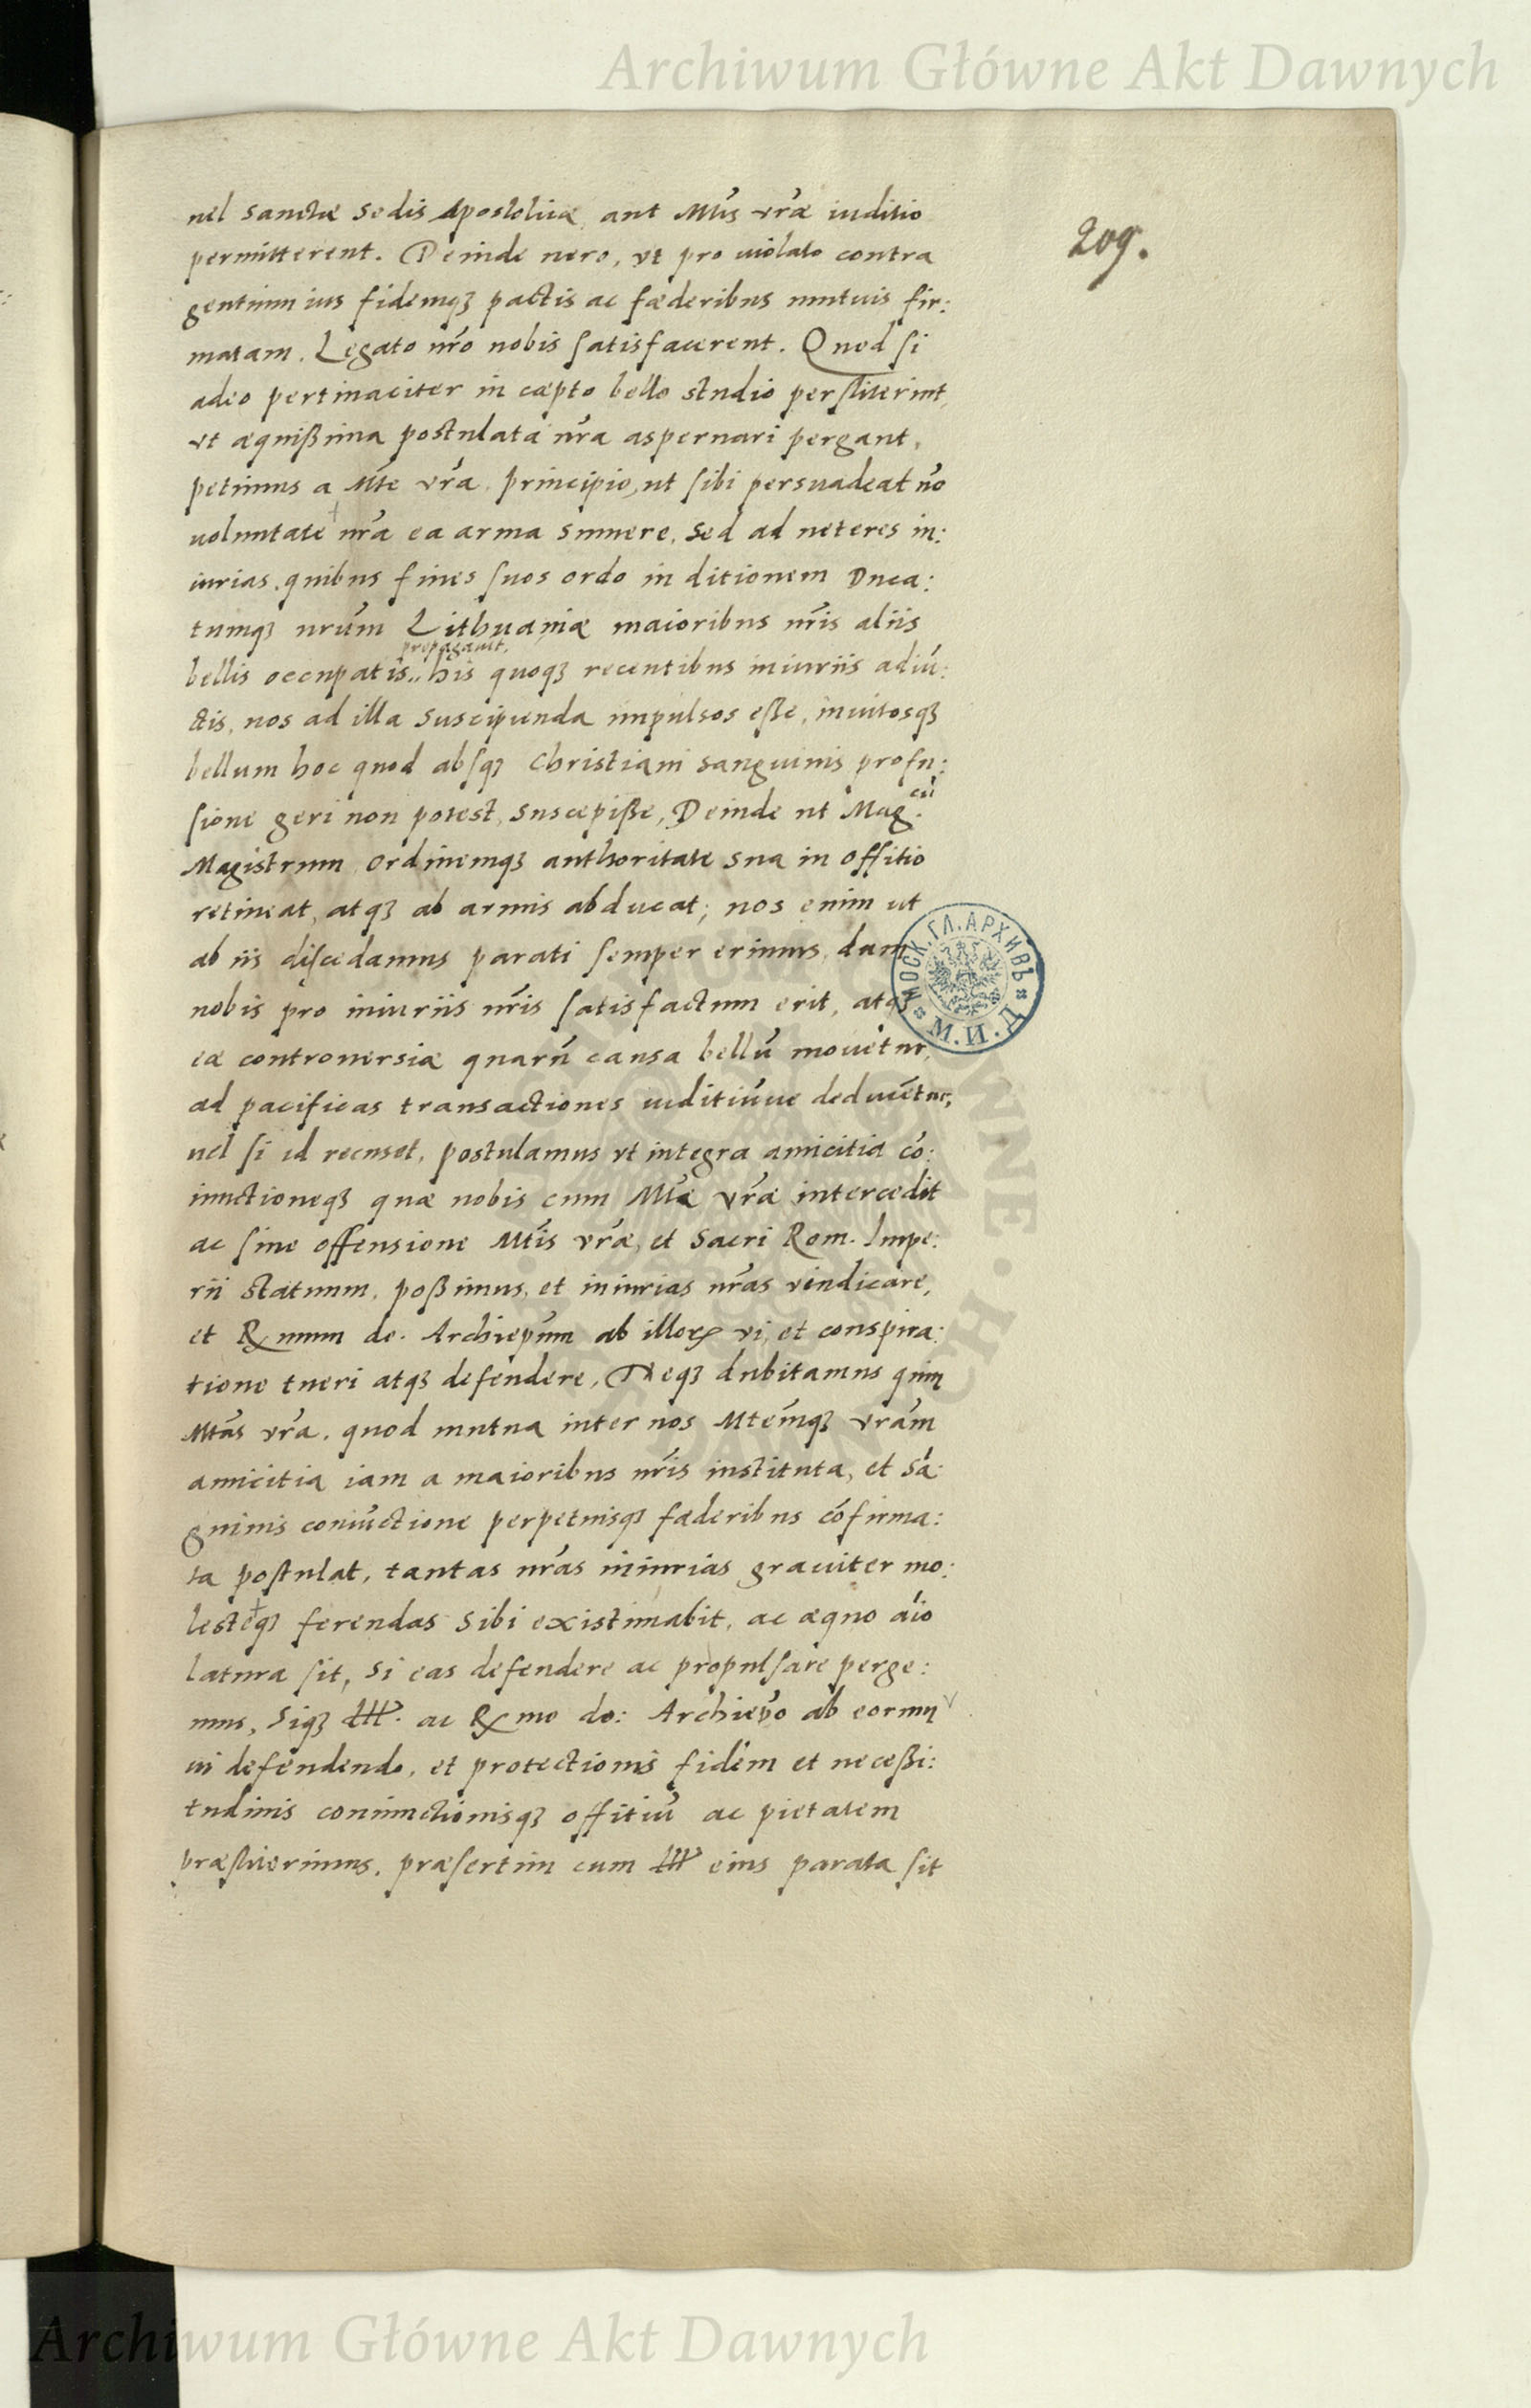 Archiwum Główne Akt Dawnych
209.
uel sanctæ Sedis Apostolicæ, aut Mtis vræ iuditio
permitterent. Deinde uero, vt pro uiolato contra
gentium ius fidemqꝫ pactis ac fæderibus mutuis fir:
matam. Legato nro nobis satisfacerent. Quod si
adeo pertinaciter in cæpto bello studio perstiterint,
vt æquißima postulata nra aspernari pergant,
petimus a Mte vra principio, ut sibi persuadeat nō
uoluntate nra ea arma sumere, sed ad ueteres in:
iurias, quibus fines suos ordo in ditionem Duca:
tumqꝫ nrum Lithuaniæ maioribus nris aliis
propagauit,
bellis occupatis,, his quoqꝫ recentibus iniuriis adiū:
ctis, nos ad illa suscipienda impulsos eße, inuitosqꝫ
bellum hoc quod absqꝫ Christiani sanguinis profu:
sione geri non potest, suscepiße, Deinde ut Mag.cū
Magistrum Ordinemqꝫ authoritate sua in offitio
retineat, atqꝫ ab armis abducat; nos enim ut
ab iis discedamus parati semper erimus, dum
nobis pro iniuriis nris satisfactum erit, atqꝫ
eæ controuersiæ quarū causa bellū mouetur,
ad pacificas transactiones iuditiūue deducētur,
uel si id recuset, postulamus vt integra amicitia cō:
iunctioneqꝫ quæ nobis cum Mte vra intercedit
ac sine offensione Mtis vræ, et Sacri Rom. Impe:
rii statuum, poßimus, et iniurias nras vindicare,
et Rmum do. Archiepum ab illorꝝ vi, et conspira:
tione tueri atqꝫ defendere, Neqꝫ dubitamus quin
Mtas vra, quod mutua inter nos Mtemqꝫ vram
amicitia iam a maioribus nris instituta, et sā:
guinis coniūctione perpetuisqꝫ fæderibus cōfirma:
ta postulat, tantas nras iniurias grauiter mo:
lesteqꝫ ferendas sibi existimabit, ac æquo aīo
latura sit, si eas defendere ac propulsare perge:
mus, Siqꝫ Ill. ac Rmo do: Archiepo ab eorum
ui defendendo, et protectionis fidem et neceßi:
tudinis coniunctionisqꝫ offitiū ac pietatem
præstiterimus, præsertim cum Ill eius parata sit
МОСК.ГЛ.АРХИВЪ
М.И.Д.
Archiwum Główne Akt Dawnych